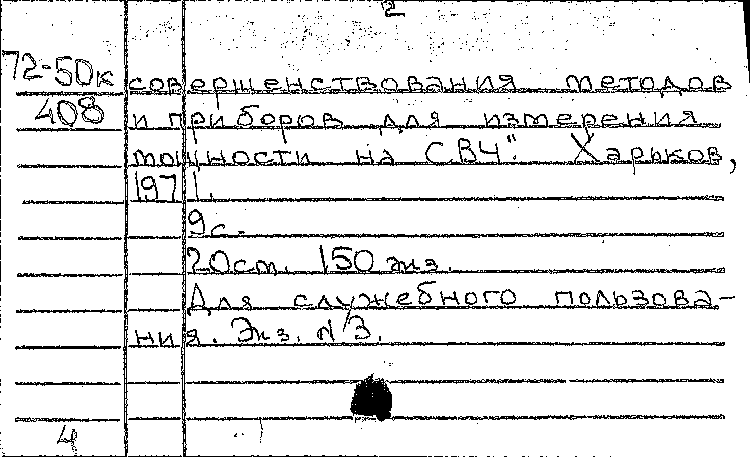 2
72-50к совершенствования методов
408 и приборов для измерения
мощности на СВЧ". Харьков,
1971.
9с.
20см. 150 экз.
Для служебного пользова-
ния. Экз. N 3.
4